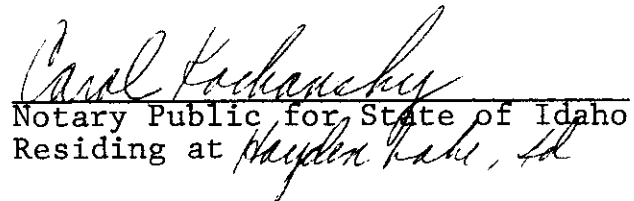 Carol Kochansky
Notary Public for State of Idaho
Residing at Hayden Lake, Id